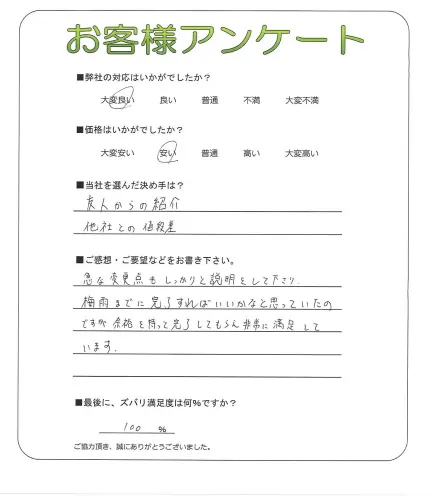 お客様アンケート
■弊社の対応はいかがでしたか？
大変良い 良い 普通 不満 大変不満
■価格はいかがでしたか？
大変安い 安い 普通 高い 大変高い
■当社を選んだ決め手は？
友人からの紹介
他社との値段差
■ご感想・ご要望などをお書き下さい。
急な変更点もしっかりと説明をして下さり、
梅雨までに完了すればいいかなと思っていたの
ですが余裕を持って完了してもらん非常に満足して
います。
■最後に、ズバリ満足度は何%ですか？
100 %
ご協力頂き、誠にありがとうございました。